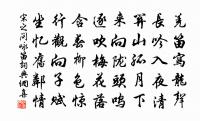 羌笛寫龍聲
長吟入夜清
關山孤月下
來向隴頭鳴
逐吹梅花落
含春柳色驚
行觀向子賦
坐憶舊鄰情
宋之问咏笛